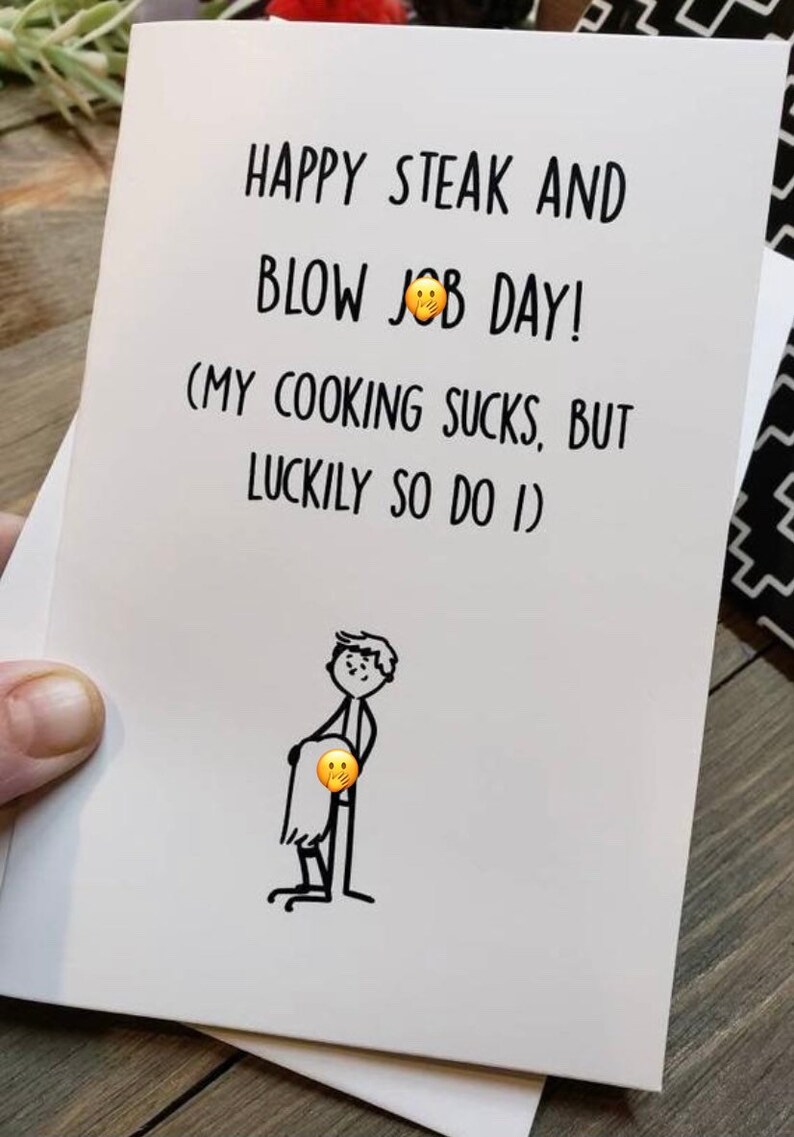 HAPPY STEAK AND
BLOW JOB DAY!
(MY COOKING SUCKS, BUT
LUCKILY SO DO I)